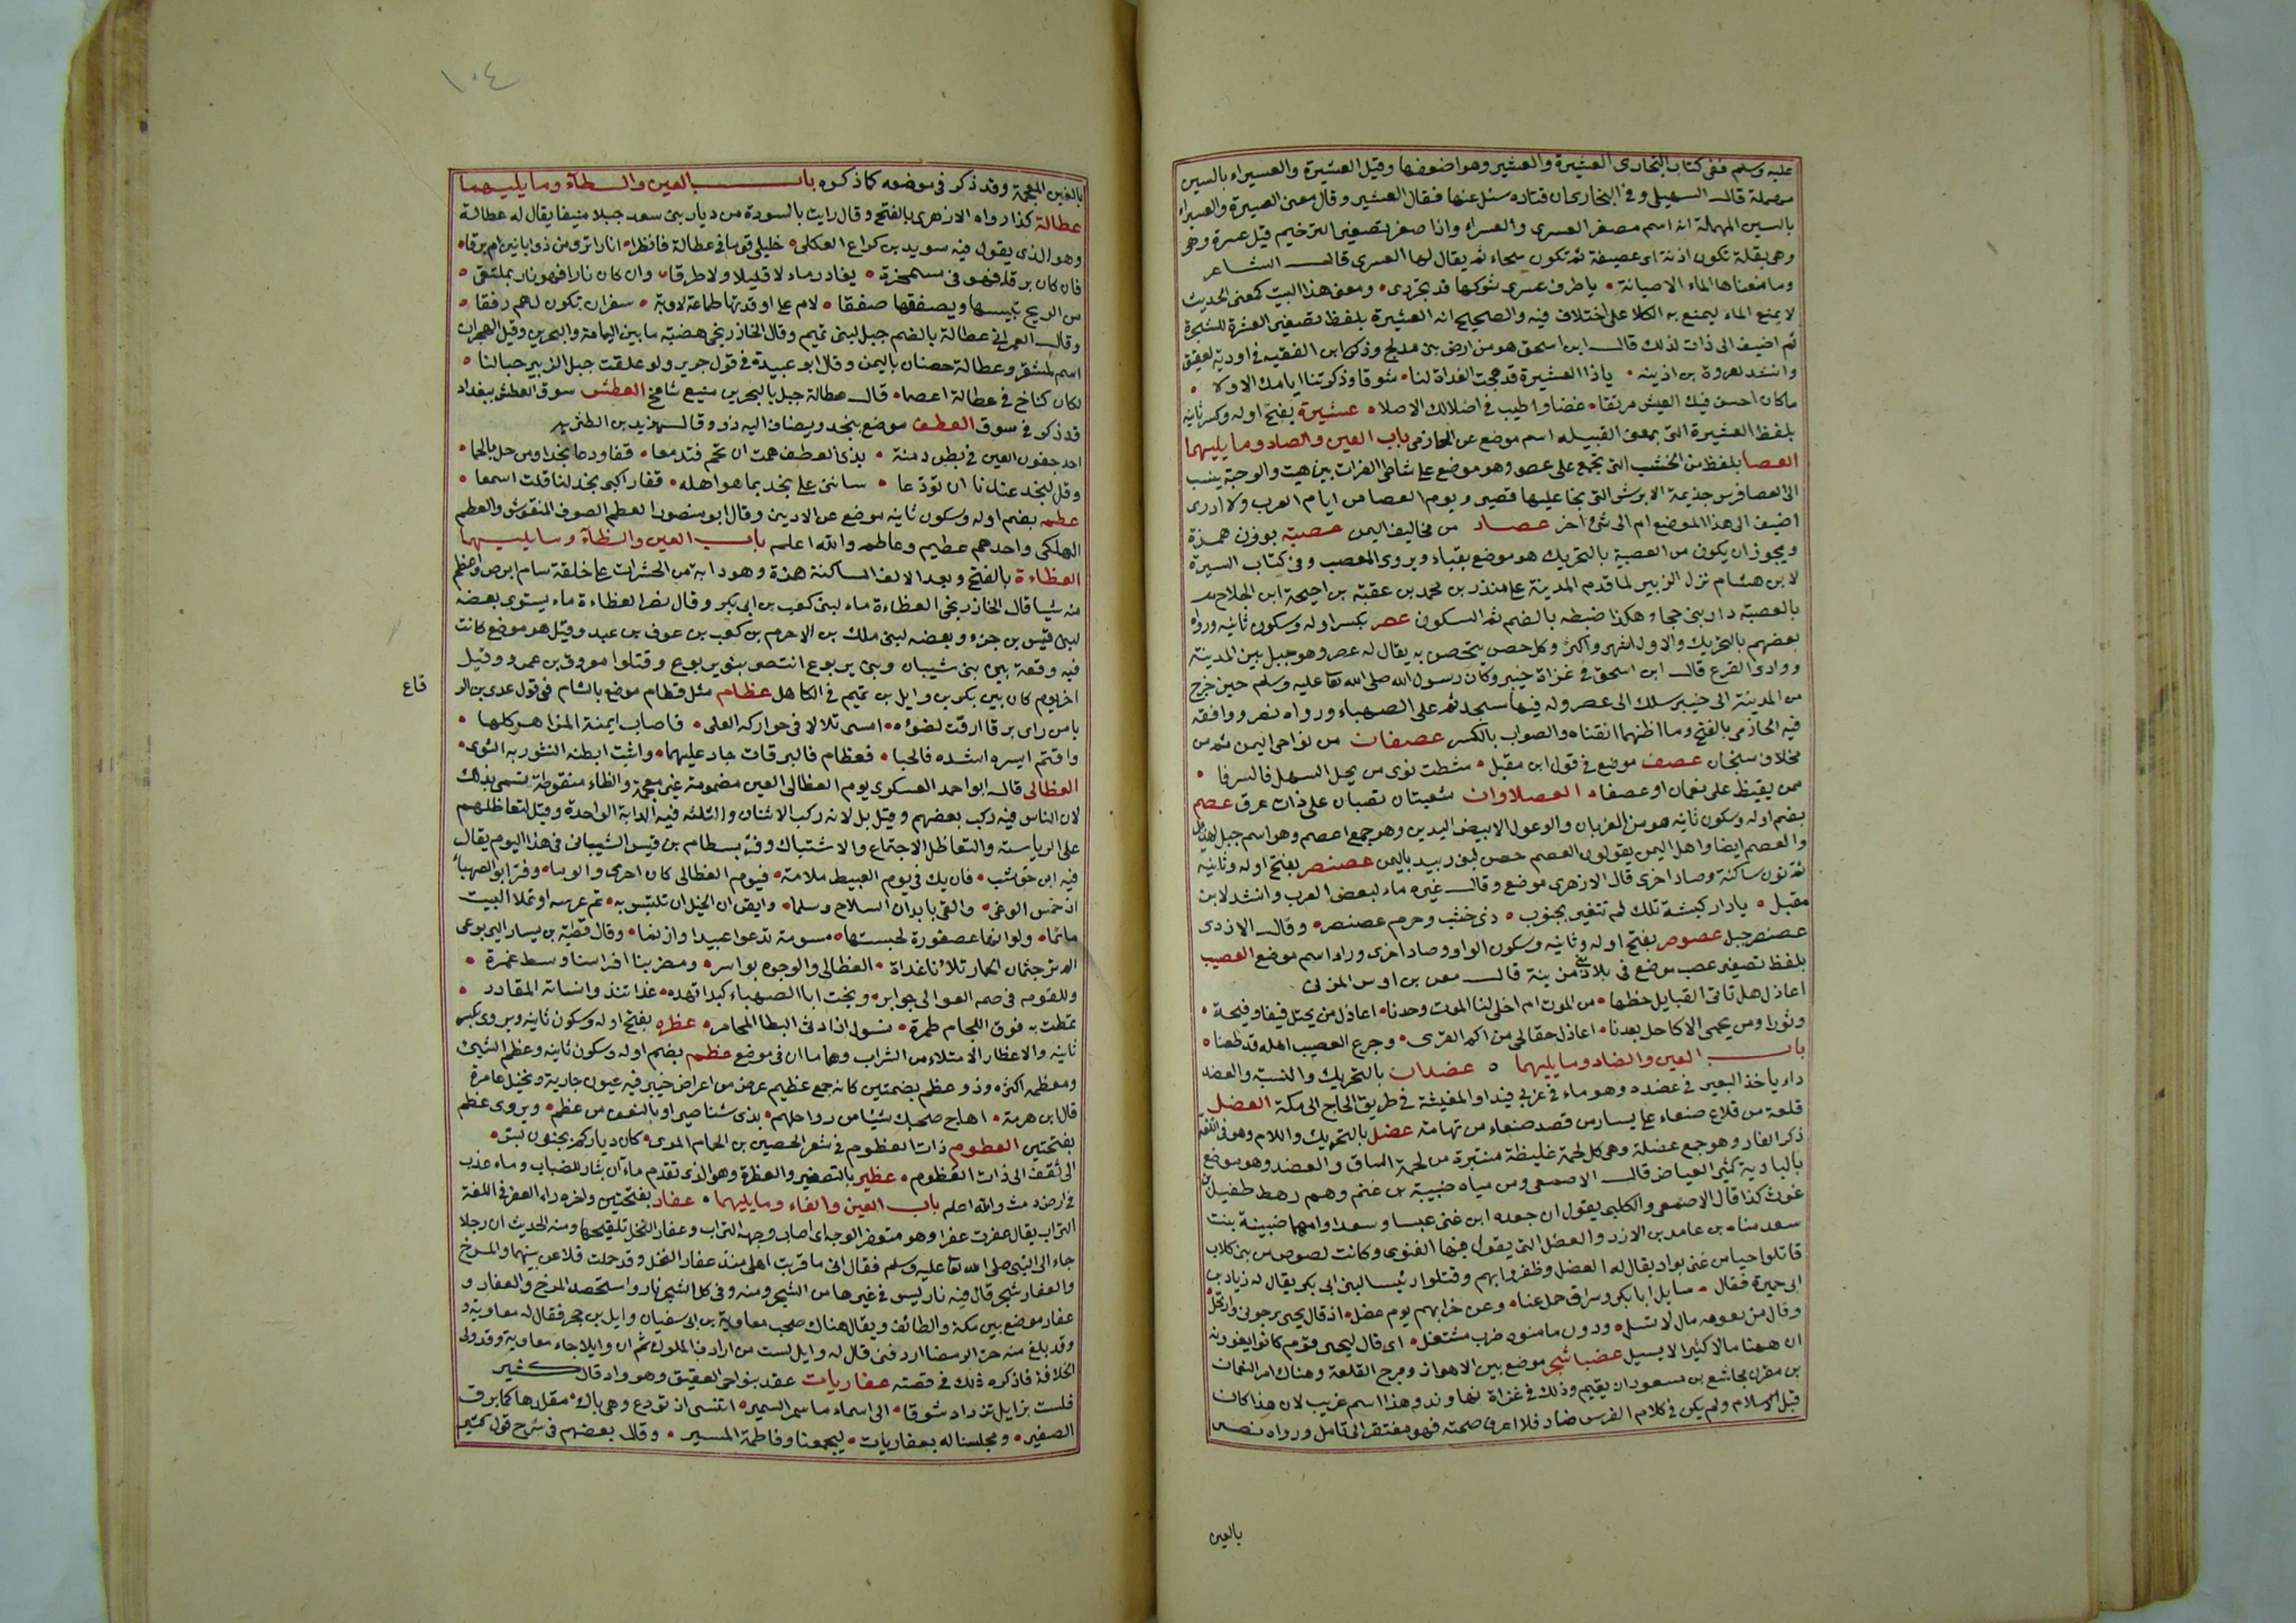 عليه وسلم ففى كتاب البخارى العشيرة والعشير وهو اضعفها وقيل العشيرة والعسيراء بالسين
مهملة قال السهيلى وفى البخارى ان قتاده سئل عنها فقال العشير وقال معنى العسيرة والعسيراء
بالسين المهملة انه اسم مصغر العسرى والعسراء واذا صغر تصغير الترخيم قيل عسيرة وهى
وهى بقلة تكون اذنة اى عصيفة ثم تكون سحاء ثم يقال لها العسرى قال الشاعر
وما منعناها الماء الا صيانة باطراف عسرى شوكها قد تجردى ومعنى هذا البيت كمعنى الحديث
لا يمنع الماء ليمنع به الكلا على اختلاف فيه والصحيح انه العشيرة بلفظ تصغير العشرة للشجرة
ثم اضيف الى ذات لذلك قال ابن اسحق هو من ارض بنى مدلج وذكر ابن الفقيه فى اودية العقيق
وانشد لعروة بن اذينه ياذا العشيرة قد هجت الغداة لنا شوقا وذكرتنا ايامك الاولا
ما كان احسن فيك العيش مرتقا غضا واطيب فى اصلالك الاصلا عشيرة بفتح اوله وكسر ثانيه
بلفظ العشيرة التى بمعنى القبيله اسم موضع عن الحازمى باب العين والصاد وما يليهما
العصا بلفظ من الخشب التى تجمع على عصى وهو موضع على شاطى الفرات بين هيت والرحبة ينسب
الى العصا فرس جذيمة الابرش التى نجا عليها قصير ويوم العصا من ايام العرب ولا ادرى
اضيف الى هذا الموضع ام الى شىء اخر عصاد من مخاليف اليمن عصبة بوزن همزة
ويجوز ان يكون من العصبية بالتحريك هو موضع بقباء ويروى المعصب وفى كتاب السيرة
لابن هشام نزل الزبير لما قدم المدينة على منذر بن محمد بن عقبة بن احيحة ابن الجلاح
بالعصبة دار بنى جحجبا وهكذا ضبطه بالضم ثم السكون عصر بكسر اوله وسكون ثانيه ورواه
بعضهم بالتحريك والاول اشهر واكثر وكل حصن يتحصن به يقال له عصر وهو جبل بين المدينة
ووادى الفرع قال ابن اسحق فى غزاة خيبر وكان رسول الله صلى الله تعا عليه وسلم حين خرج
من المدينة الى خيبر سلك الى عصر وله فيها مسجد ثم على الصهباء ورواه نصر ووافقه
فيه الحازمى بالفتح وما اظنهما اتقناه والصواب بالكسر عصفان من نواحى اليمن ثم من
مخلاف سنحان عصف موضع فى قول ابن مقبل شطت نوى من يحل السهل فالسرفا
ممن يقيظ على نعمان او عصفا العصلاوان شعبتان تصبان على ذات عرق عصم
بضم اوله وسكون ثانيه هو من الغربان والوعول الابيض اليدين وهو جمع اعصم وهو اسم جبل لهذيل
والعصم ايضا واهل اليمن يقولون العصم حصن لبنى زبيد باليمن عصنصر بفتح اوله وثانيه
ثم نون ساكنة وصاد اخرى قال الازهرى موضع وقال غيره ماء لبعض العرب وانشد لابن
مقبل يا دار كبشة تلك لم تتغير بجنوب ذى خشب وحرم عصنصر وقال الازدى
عصنصر جبل عصوص بفتح اوله وثانيه وسكون الواو وصاد اخرى وراء اسم موضع العصيب
بلفظ تصغير عصب موضع فى بلاد مزينة قال معن بن اوس المزنى
اعاذل هل تاتى القبايل حظها من الموت ام اخلى لنا الموت وحدنا اعاذل من يحتل فيفا وفيحة
وثورا ومن يحمى الاكاحل بعدنا اعاذل خف الحى من اكم القرى وجرع العصيب اهله قد ظعنا
باب العين والضاد وما يليهما عضدان بالتحريك والنسبة والعضد
داء ياخذ البعير فى عضده وهو ماء فى غربى فيد او المغيثة فى طريق الحاج الى مكة العضل
قلعة من قلاع صنعاء على يسار من قصد صنعاء من تهامة عضل بالتحريك واللام وهو فى اللغة
ذكر الفار وهو جمع عضلة وهى كل لحمة غليظة منتبرة من لحمة الساق والعضد وهو موضع
بالبادية كثير الغياض قال الاصمعى ومن مياه ضبيبة بن غنم وهم رهط طفيل بن
غوث كذا قال الاصمعى والكلبى يقول ان جعده ابن غنى عبسا وسعدا وامهما ضبينة بنت
سعد مناة بن عامد بن الازد والعضل التى يقول فيها الغنوى وكانت لصوص من بنى كلاب
قاتلوا حيا من غنى بواد يقال له العضل وظفروا بهم وقتلوا رئيسا لبنى ابى بكر يقال له زياد بن
ابى حميرة فقال سايل ابا بكر وسراق حلعنا وعن خرابهم يوم عضل اذ قال يحيى
وقال من يعومه مال لا تسل ودون ما منوه ضرب مشتعل اى قال ليحيى قوم كانوا يغورنه
ان ههنا مالا كثيرا لا يسيل عضبا شجر موضع بين الاهواز ومرج القلعة وهناك امر النعمان
بن مقرن مجاشع بن مسعود ان يقيم وذلك فى غزاة نهاوند وهذا اسم غريب لان هذا كان
قبل الاسلام ولم يكن فى كلام الفرس ضاد فلا اعرف صحته فهو مفتقر الى تامل ورواه نصر
بالغين
١٠٤
بالغين المعجمة وقد ذكر فى موضعه كما ذكره باب العين والطاء وما يليهما
عطالة كذا رواه الازهرى بالفتح وقال رايت بالسودة من ديار بنى سعد جبلا منيفا يقال له عطالة
وهو الذى يقول فيه سويد بن كراع العكلى خليلى قوما فى عطالة فانظرا انارا ترى من ذى ابانين ام برقا
فان كان برقا فهو فى مشمخرة يغادر ماء لا قليلا ولا طرقا وان كان نارا فهو نار بملتقى
من الريح تسيبها ويصفقها صفقا لام على اوقدتها طماعة لاوبة سفران تكون لهم رفقا
وقال العمرانى عطالة بالضم جبل لبنى تميم وقال الخارزنجى هضبة ما بين اليمامة والبحرين وقيل الهجران
اسم المشقر وعطالة حصنان باليمن وقال ابو عبيدة فى قول جرير ولو علقت جبل الزبير حبالنا
لكان كناخ فى عطالة اعصما قال عطالة جبل بالبحرين منيع شامخ العطش سوق العطش ببغداد
قد ذكر فى سوق العطف موضع بنجد ويضاف اليه ذو وقال يزيد بن الطثريه
احد جفون العين فى بطن دمنة بذى العطف همت ان تحم فتدمعا قفا ودعا نجدا ومن حل بالحما
وقل لنجد عندنا ان تودعا ساثنى على نجد بما هو اهله قفا راكبى نجد لنا قلت اسمعا
عطم بضم اوله وسكون ثانيه موضع عن الاديبى وقال ابو منصور العطم الصوف المنفوش والعطم
الهلكى واحدهم عطيم وعاطم والله اعلم باب العين والظاء وما يليهما
العظاءة بالفتح وبعد الالف الساكنة همزة وهو دابة من الحشرات على خلقة سام ابرص واعظم
منه شيا قال الخارزنجى العظاءة ماء لبنى كعب بن ابى بكر وقال نصر العظاءة ماء يستوى بعضه
لبنى قيس بن جزء وبعضه لبنى ملك بن الاحرم بن كعب بن عوف بن عبد وقيل هو موضع كانت
فيه وقعة بين بنى شيبان وبنى يربوع انتصر بنو يربوع وقتلوا مفروق بن عمرو وقيل
اخر يوم كان بين بكر بن وايل بن تميم فى الكاهل عظام مثل قطام موضع بالشام فى قول عدى بن الر
قاع
يا من راى برقا ارقت لضوئه امسى تلالا فى حواركه العلى فاصاب ايمنه المزاهر كلها
واقتم ايسره اشده فالحبا فعظام فالبرقات جاد عليهما وابث ابطنه النثور به النوى
العظالى قال ابو احمد العسكرى يوم العظالى العين مضمومة غير معجمة والظاء منقوطة تسمى بذلك
لان الناس فيه ركب بعضهم وقيل بل لانه ركب الاثنان والثلثه فيه الدابة الواحدة وقيل لتعاظلهم
على الرياسة والتعاظل الاجتماع والاشتباك وفر بسطام بن قيس الشيبانى فى هذا اليوم يقال
فيه ابن حوشب فان يك فى يوم الغبيط ملامة فيوم العظالى كان اخزى والوما وفر ابو الصهباء
اذ حمس الوغى والقى بابدان السلاح وسلما وايقن ان الخيل ان تلتبس به تم عرسه او تملا البيت
ماتما ولو انها عصفورة لحسبتها مسومة تدعو عبيدا وازنما وقال قطبة بن يسار اليربوعى
الم تر جثمان الحمار تلاءنا غداة العظالى والوجوه بواسر ومضربنا افراسنا وسط غمرة
وللقوم فى صم العوالى جوابر ونجت ابا الصهباء كبداء نهدة غداتئذ وانساته المقادر
تمطت به فوق اللجام طمرة نسول اذا دنى البطا المحامر عظره بفتح اوله وسكون ثانيه ويروى بكسر
ثانيه والاعظار الامتلاء من الشراب وهما ماان فى موضع عظم بضم اوله وسكون ثانيه وعظم الشىء
ومعظمه اكثره وذو عظم بضمتين كانه جمع عظيم عرض من اعراض خيبر فيه عيون جارية ونخيل عامرة
قال ابن هرمة اهاج صحبك شيئا من رواحلهم بذى شناصير او بالنعف من عظم ويروى عظم
بفتحتين العظوم ذات العظوم فى شعر الحصين بن الحمام المرى كان دياركم بجنوب بس
الى ثقف الى ذات العظوم عظير بالتصغير والعظرة وهو الذى تقدم ماءان بثار الضباب وماء عذب
فى ارض دمث والله اعلم باب العين والفاء وما يليهما عفار بفتحتين واخره راء العفر فى اللغة
التراب يقال عفرت عفرا وهو متعفر الوجه اى اصاب وجهه التراب وعفار النخل تلقيحها ومنه الحديث ان رجلا
جاء الى النبى صلى الله تعا عليه وسلم فقال انى ما قربت اهلى منذ عفار النخل وقد حملت فلاعن بينهما والمرخ
والعفار شجر قال فيه نار ليس فى غيرها من الشجر ومنه وفى كل الشجر نار واستحصد المرخ والعفار و
عفار موضع بين مكة والطائف ويقال هناك صحب معاوية بن ابى سفيان وايل بن حجر فقال له معاوية و
وقد بلغ منه حر الرمضا اردفنى قال له وايل لست من ارداف الملوك ثم ان وايلا جاء معاوية وقد ولى
الخلافة فاذكره ذلك فى قصته عفاريات عقد بنواحى العقيق وهو واد قال كثير
فلست بزايل تزداد شوقا الى اسماء ما سمر السمير اتنسى اذ تودع وهى باد مقلدها كما برق
الصغير ومجلسنا له بعفاريات ليجمعنا وفاطمة المسير وقال بعضهم فى شرح قول كثير